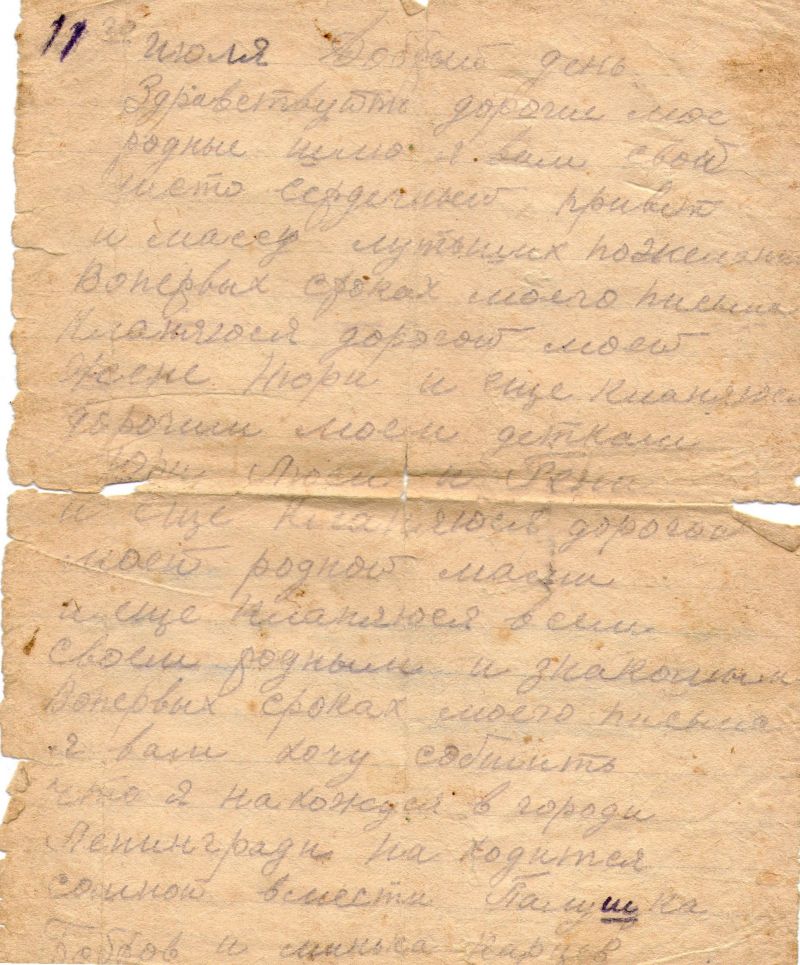 11 го
июля Добрый день
Здравствуйте дорогие мое
родные шлю я вам свой
чисто сердечный привет
и массу лутьших пожеланий
Вопервых строках моего письма
кланяюся дорогой моей
жене Нюри и еще кланяюся
дорогим моем деткам
Люси и Гени
и еще кланяюся дорогой
моей родной мами
и еще кланяюся всем
своем родным и знакомым
Вопервых сроках моего письма
я вам хочу собшить
что я нахожуся в городи
Ленингради на ходится
сомной вмести Палушка
Бобров и минька Карцев